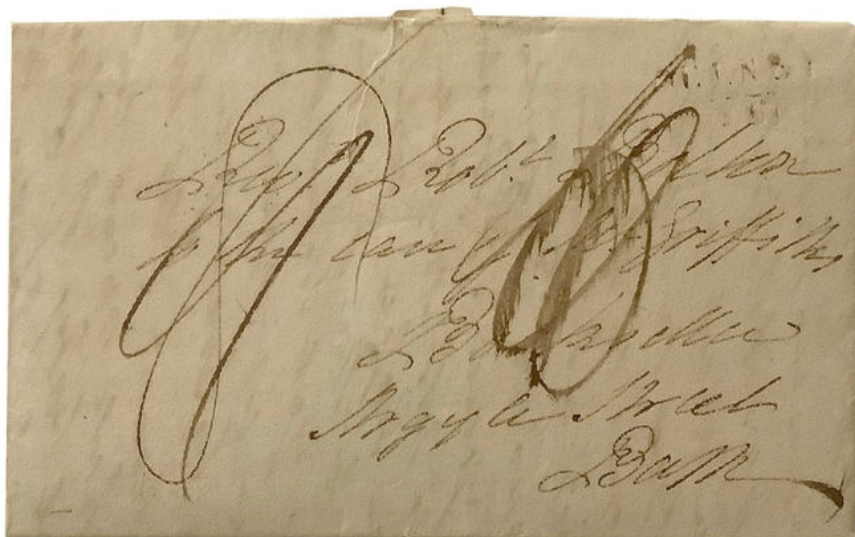 Revd. Robt.
to the care of Mr. Griffiths
Bookseller
Argyle Street
Bath